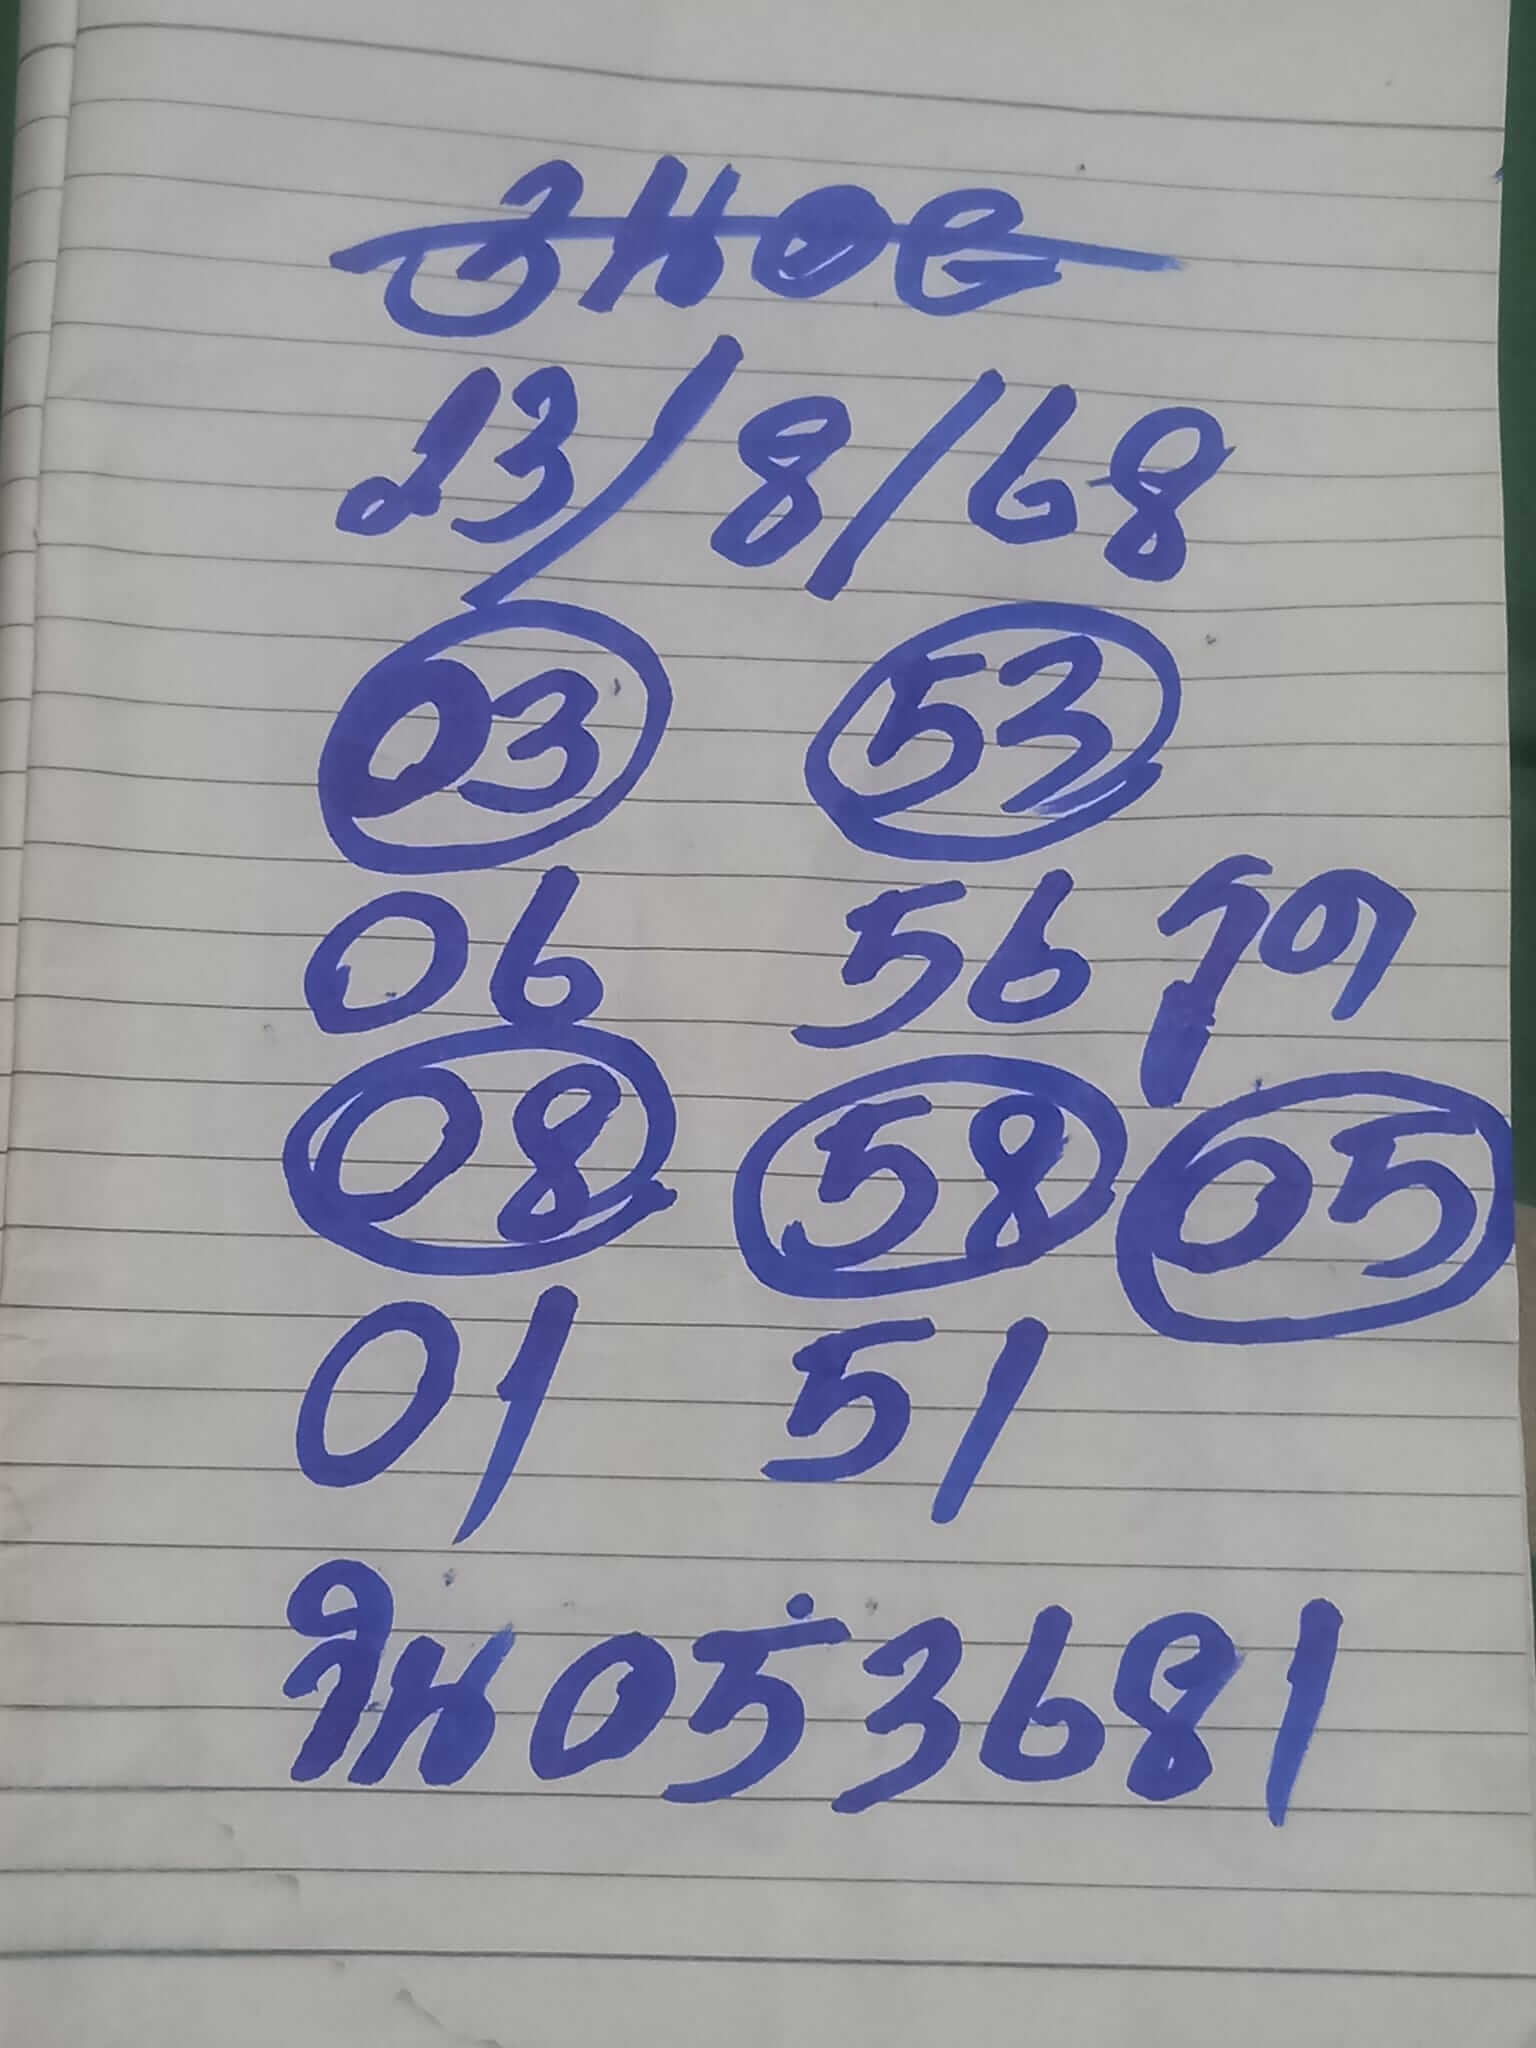 23/8/68
03 53
06 56 รูด
08 58 05
01 51
วิน 053681